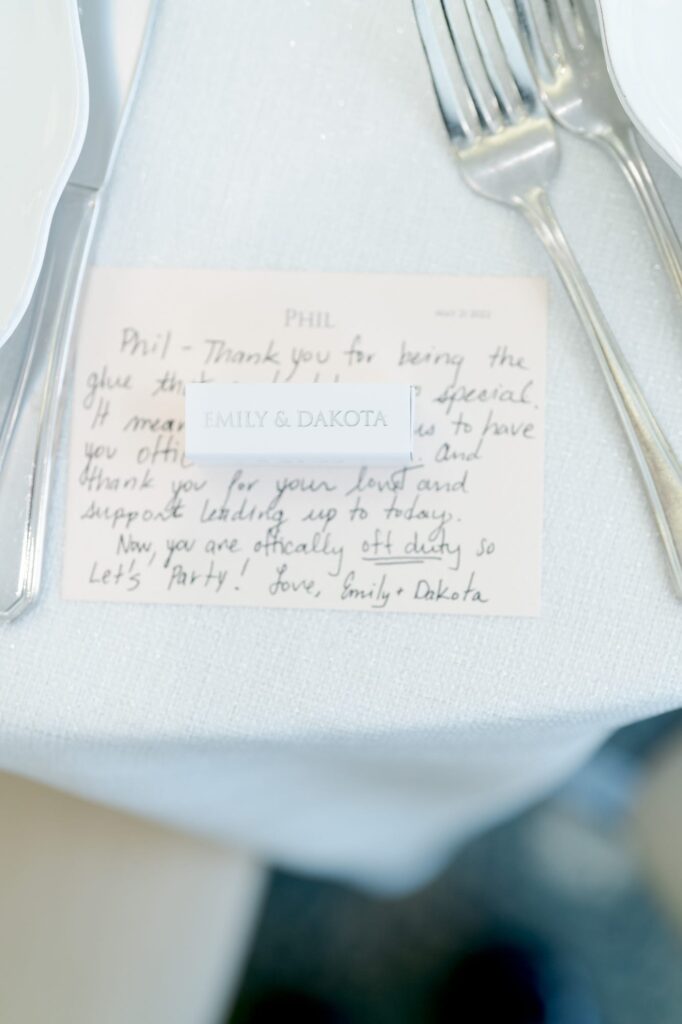 PHIL
Phil - Thank you for being the
glue special.
It us to have
you And
thank you for your love and
support leading up to today.
Now, you are offically off duty so
Let's Party! Love, Emily + Dakota
EMILY & DAKOTA